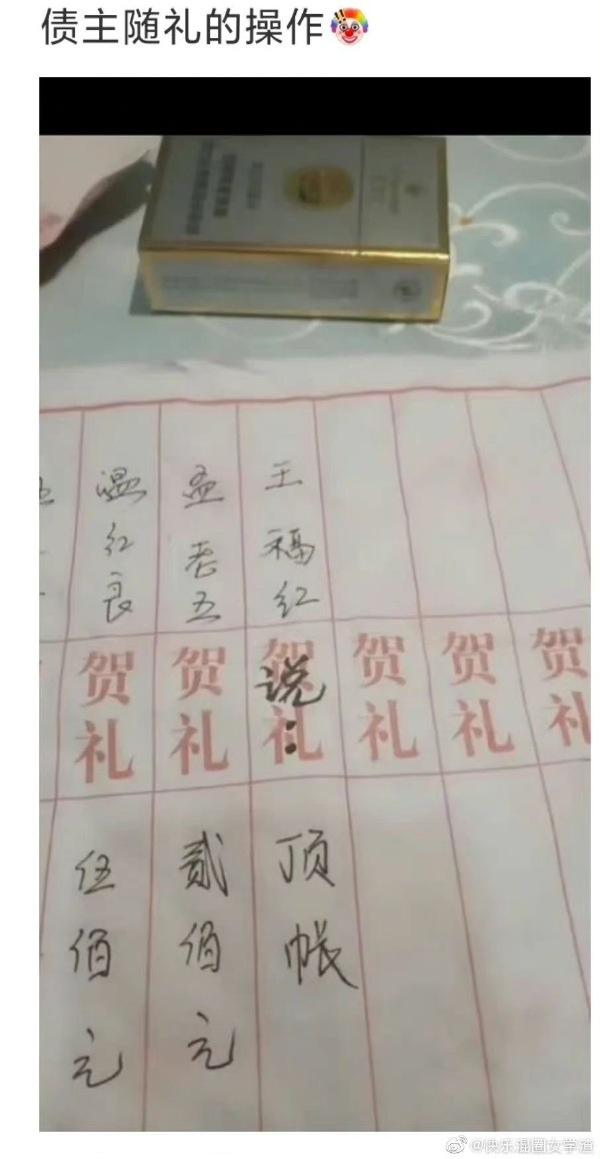 债主随礼的操作🤡
温红良
贺礼
伍佰元
孟老五
贺礼
贰佰元
王福红
贺礼
说:
顶帐
贺礼
贺礼
贺礼
@快乐混圈女学